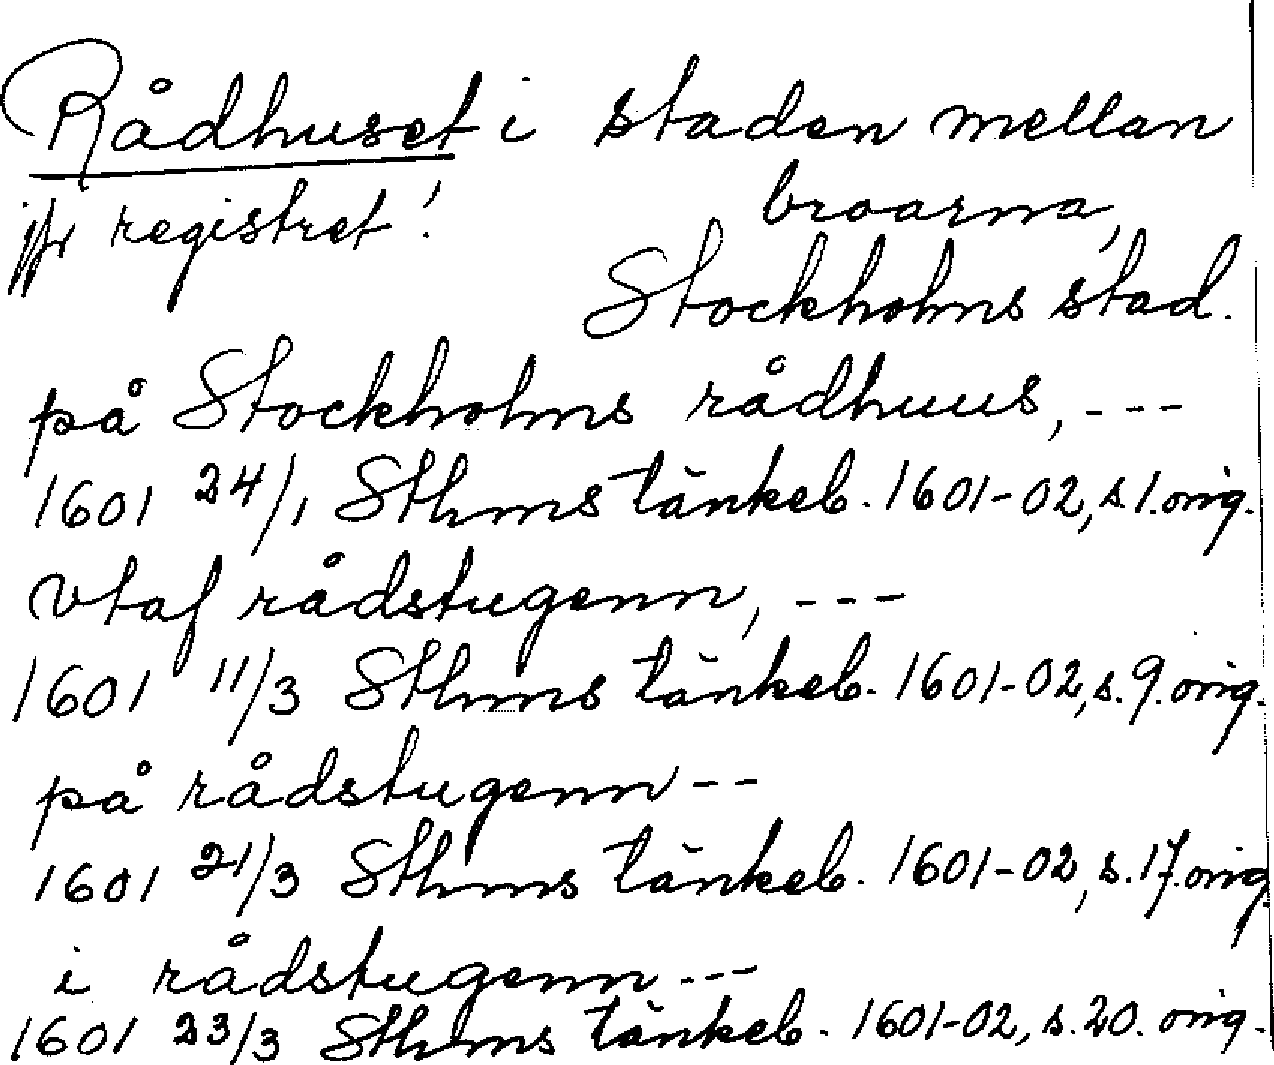 Rådhuset i staden mellan
broarna,
jfr registret!
Stockholms stad.
på Stockholms rådhuus, ---
1601 24/1 Sthms tänkeb. 1601-02, s. 1. orig.
vtaf rådstugenn, ---
1601 11/3 Sthms tänkeb. 1601-02, s. 9. orig.
på rådstugenn --
1601 21/3 Sthms tänkeb. 1601-02, s. 17. orig.
i rådstugenn ---
1601 23/3 Sthms tänkeb. 1601-02, s. 20. orig.